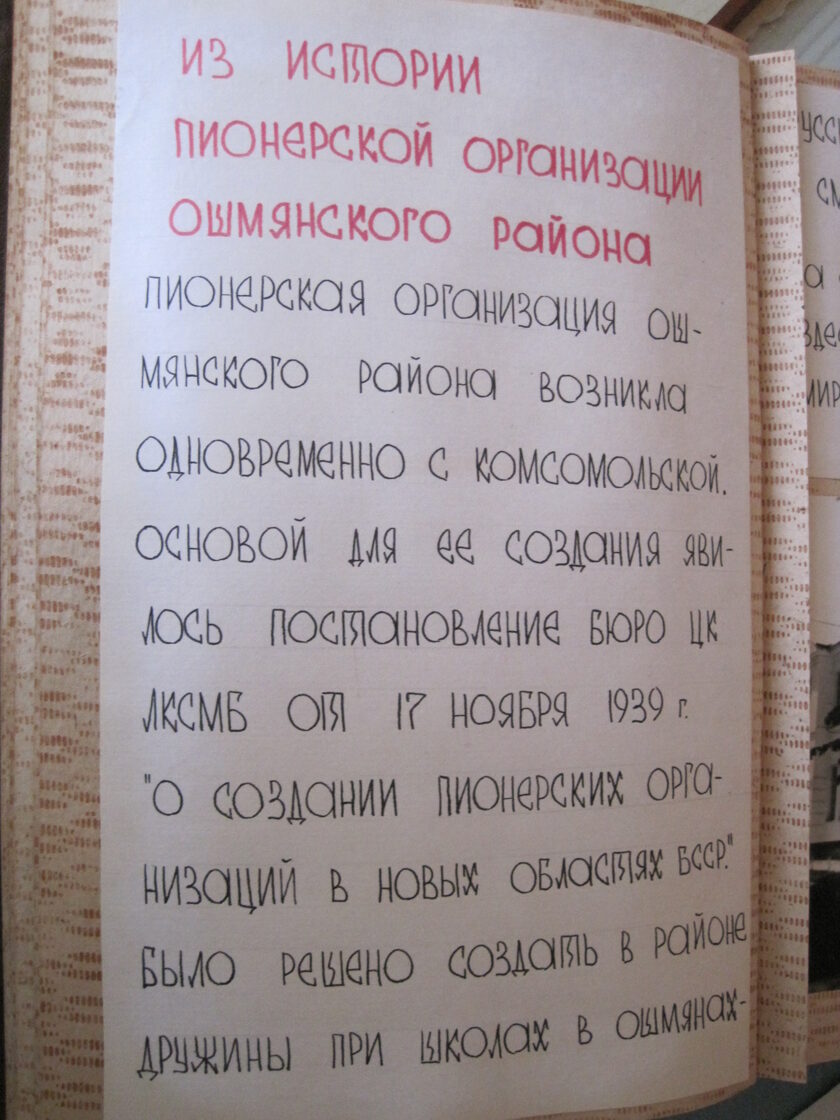 ИЗ ИСТОРИИ
ПИОНЕРСКОЙ ОРГАНИЗАЦИИ
ОШМЯНСКОГО РАЙОНА
ПИОНЕРСКАЯ ОРГАНИЗАЦИЯ ОШ-
МЯНСКОГО РАЙОНА ВОЗНИКЛА
ОДНОВРЕМЕННО С КОМСОМОЛЬСКОЙ.
ОСНОВОЙ ДЛЯ ЕЕ СОЗДАНИЯ ЯВИ-
ЛОСЬ ПОСТАНОВЛЕНИЕ БЮРО ЦК
ЛКСМБ ОТ 17 НОЯБРЯ 1939 г.
"О СОЗДАНИИ ПИОНЕРСКИХ ОРГА-
НИЗАЦИЙ В НОВЫХ ОБЛАСТЯХ БССР."
БЫЛО РЕШЕНО СОЗДАТЬ В РАЙОНЕ
ДРУЖИНЫ ПРИ ШКОЛАХ В ОШМЯНАХ-